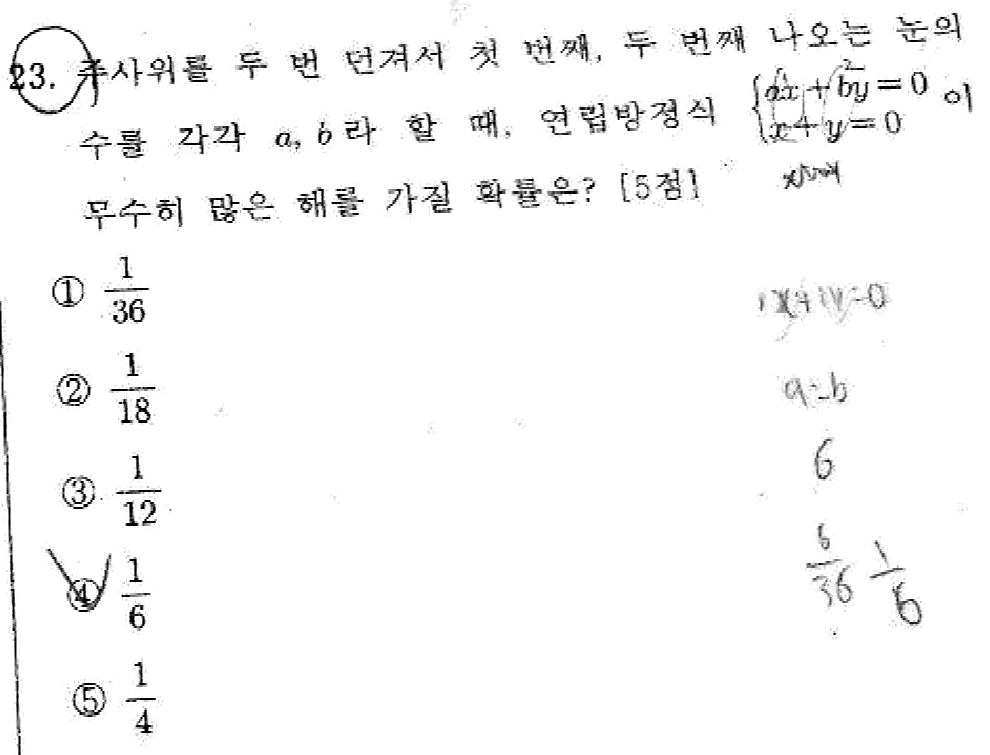 23. 주사위를 두 번 던져서 첫 번째, 두 번째 나오는 눈의
수를 각각 a, b라 할 때, 연립방정식 { ax + by = 0 이
x + y = 0
무수히 많은 해를 가질 확률은? [5점]
① 1/36
② 1/18
③ 1/12
④ 1/6
⑤ 1/4
a=b
6
6/36 1/6